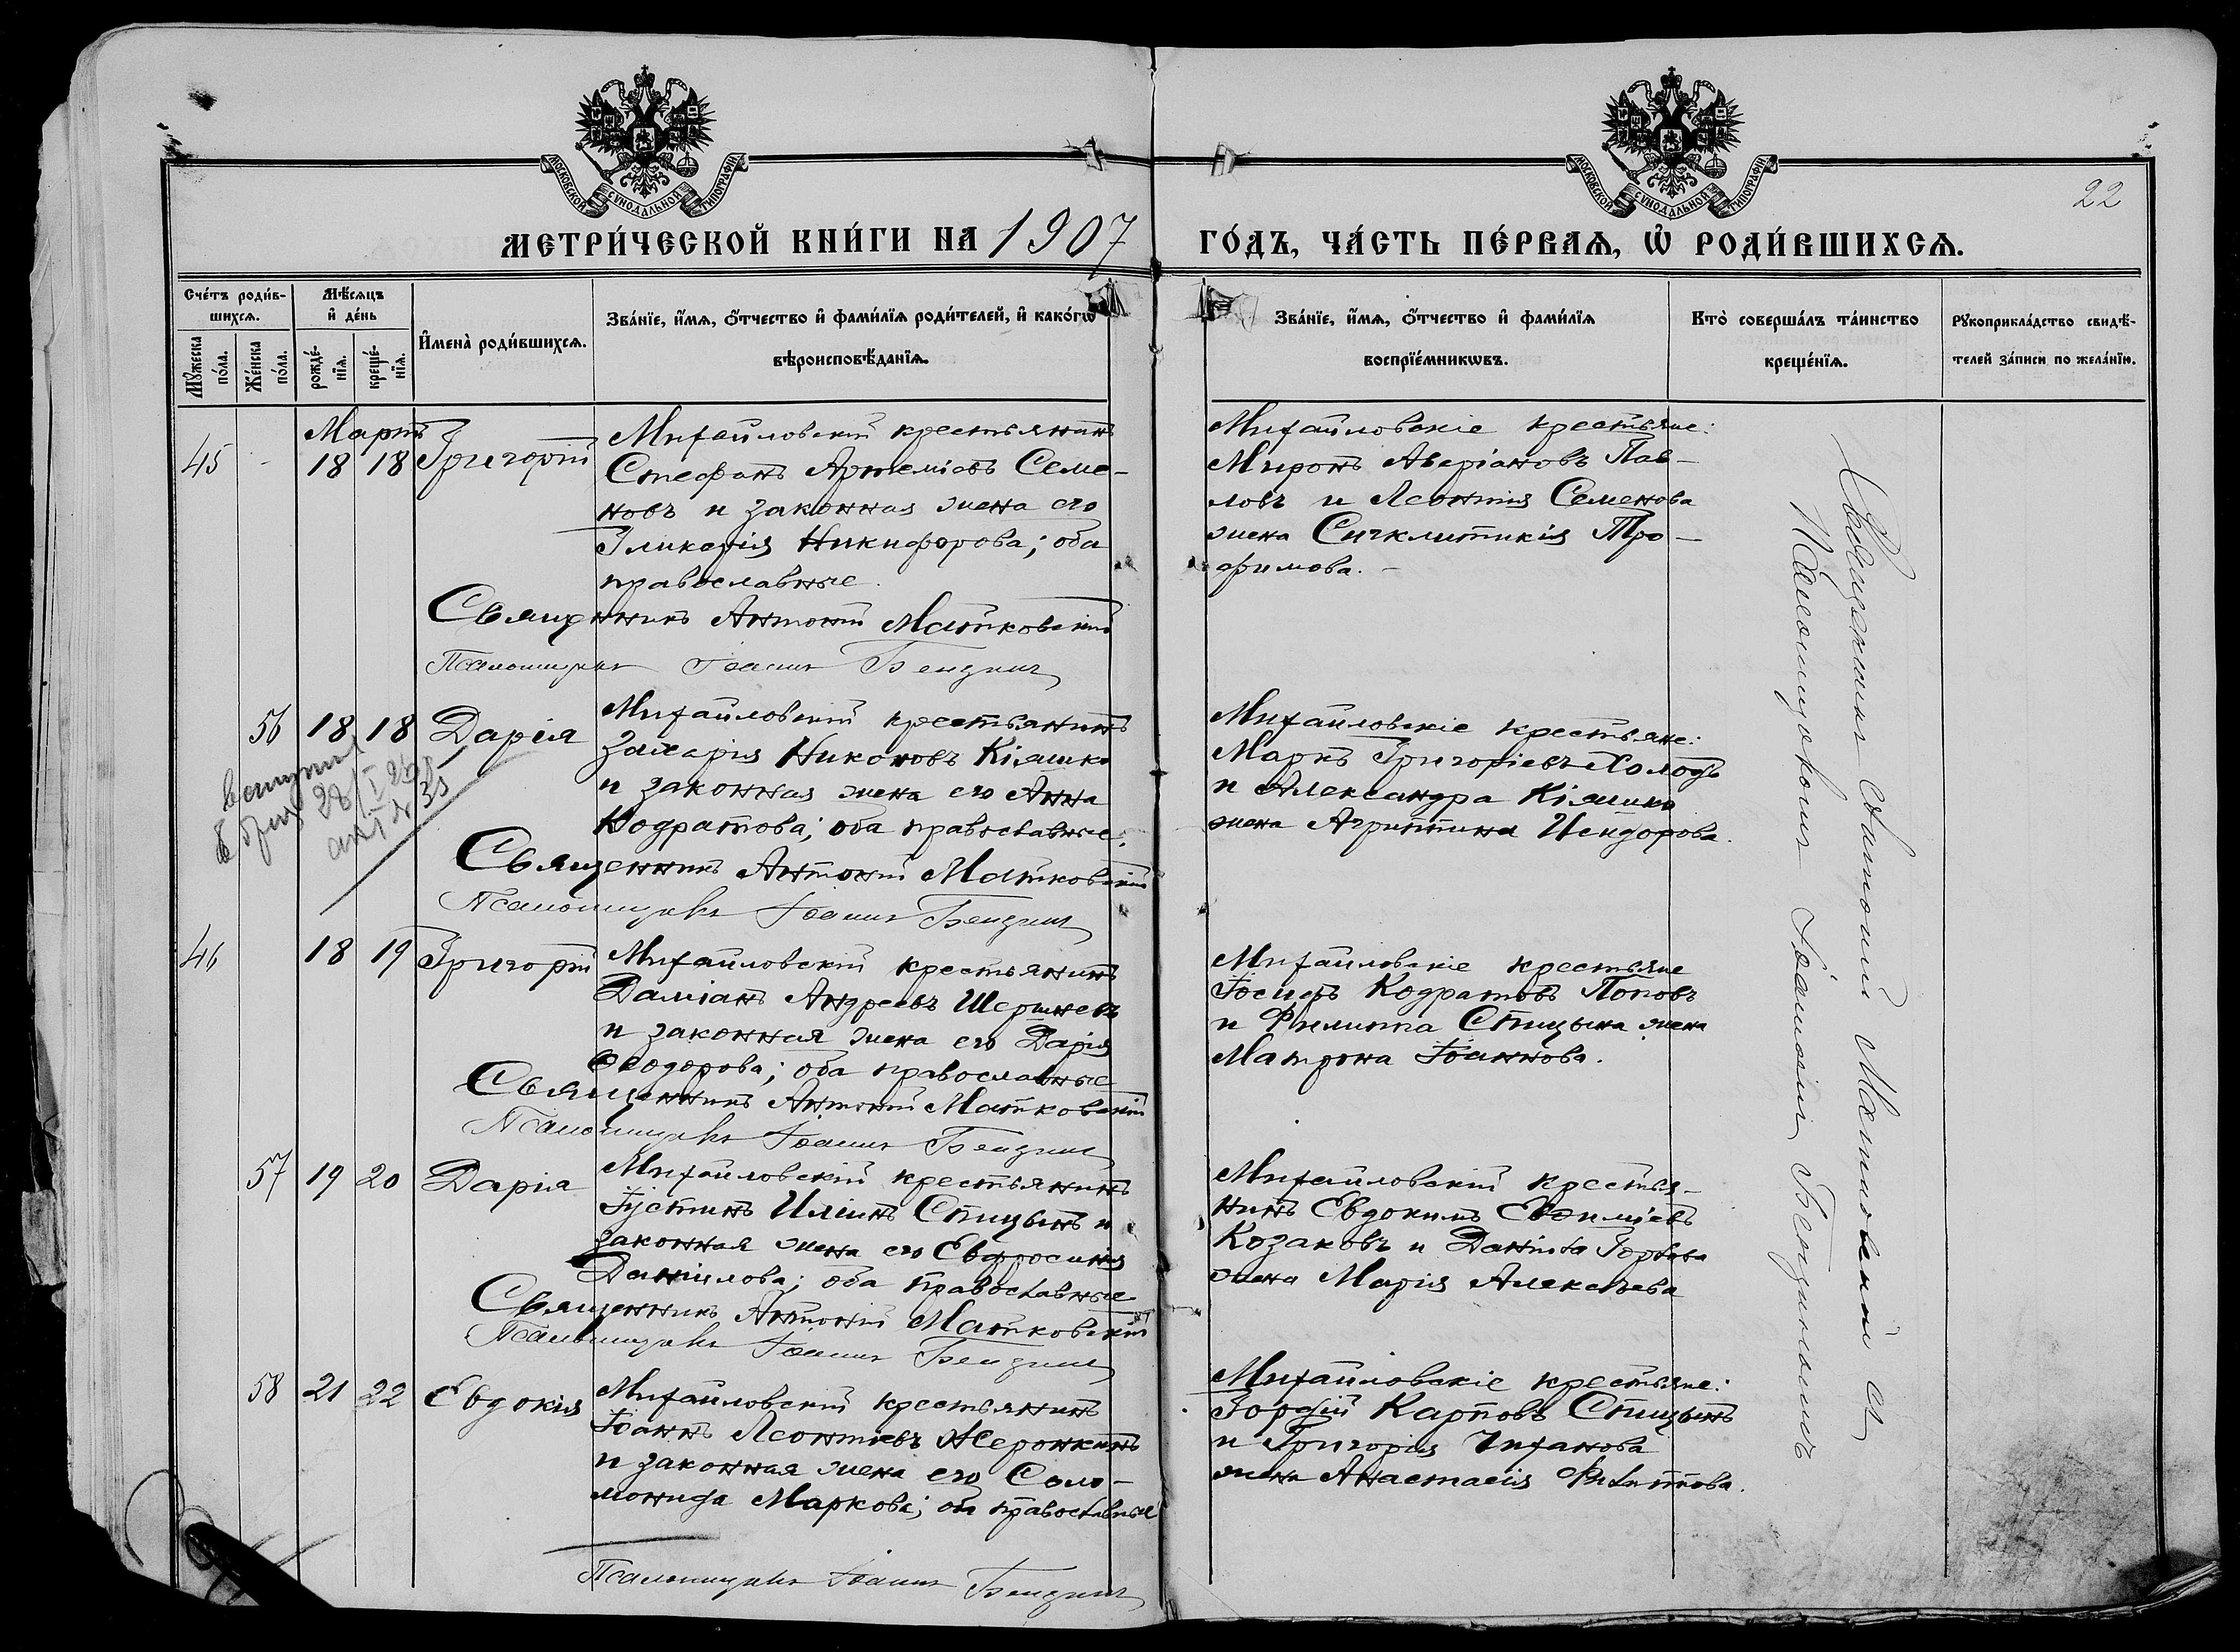 МОСКОВСКОЙ СУНОДАЛЬНОЙ ТИПОГРАФІИ
МОСКОВСКОЙ СУНОДАЛЬНОЙ ТИПОГРАФІИ
22
МЕТРИ́ЧЕСКОЙ КНИ́ГИ НА 1907 ГО́ДЪ, ЧА́СТЬ ПЕ́РВАѦ, Ѡ҆ РОДИ́ВШИХСѦ.
Сче́тъ роди́в-
шихсѧ.
Мѣ́сѧцъ
и҆ де́нь
Мꙋ́жеска
по́ла.
Же́нска
по́ла.
рожде́-
нїѧ.
креще́-
нїѧ.
И҆мена̀ роди́вшихсѧ.
Зва́нїе, и҆́мѧ, ѻ҆́тчество и҆ фами́лїѧ роди́телей, и҆ како́гѡ
вѣроисповѣ́данїѧ.
Зва́нїе, и҆́мѧ, ѻ҆́тчество и҆ фами́лїѧ
воспрїе́мникѡвъ.
Кто̀ соверша́лъ та́инство
креще́нїѧ.
Рꙋкоприкла́дство свидѣ́-
телей за́писи по жела́нїю.
Мартъ
45 - 18 18 Григорій
Михайловскій крестьянинъ
Стефанъ Артеміевъ Семе-
новъ и законная жена его
Гликерія Никифорова; оба
православные.
Священникъ Антоній Матковскій
Псаломщикъ Іоаннъ Бендинъ
Михайловскіе крестьяне:
Миронъ Аверіановъ Пав-
ловъ и Леонтія Семенова
жена Сигклитикія Тро-
фимова. -
56 18 18 Дарія
Михайловскій крестьянинъ
Захарія Никоновъ Кіяшко
и законная жена его Анна
Кодратова; оба православные.
Священникъ Антоній Матковскій
Псаломщикъ Іоаннъ Бендинъ
Михайловскіе крестьяне:
Маркъ Григоріевъ Холодъ
и Александра Кіяшко
жена Агриппина Исидорова.
46 18 19 Григорій
Михайловскій крестьянинъ
Даміанъ Андреевъ Шершневъ
и законная жена его Дарія
Ѳеодорова; оба православные
Священникъ Антоній Матковскій
Псаломщикъ Іоаннъ Бендинъ
Михайловскіе крестьяне
Іосифъ Кодратовъ Поповъ
и Филиппа Спицына жена
Матрона Іоаннова.
57 19 20 Дарія
Михайловскій крестьянинъ
Іустинъ Иліинъ Спицынъ и
законная жена его Евфросинія
Даніилова; оба православные
Священникъ Антоній Матковскій
Псаломщикъ Іоаннъ Бендинъ
Михайловскій крестья-
нинъ Евдокимъ Евѳиміевъ
Козаковъ и Даніила Горбова
жена Марія Алексѣева
58 21 22 Евдокія
Михайловскій крестьянинъ
Іоаннъ Леонтіевъ Жеронкинъ
и законная жена его Соло-
монида Маркова; оба православные
Псаломщикъ Іоаннъ Бендинъ
Михайловскіе крестьяне:
Гордій Карповъ Спицынъ
и Григорія Чиханова
жена Анастасія Филиппова.
Священникъ Антоній Матковскій съ
Псаломщикомъ Іоанномъ Бендинымъ